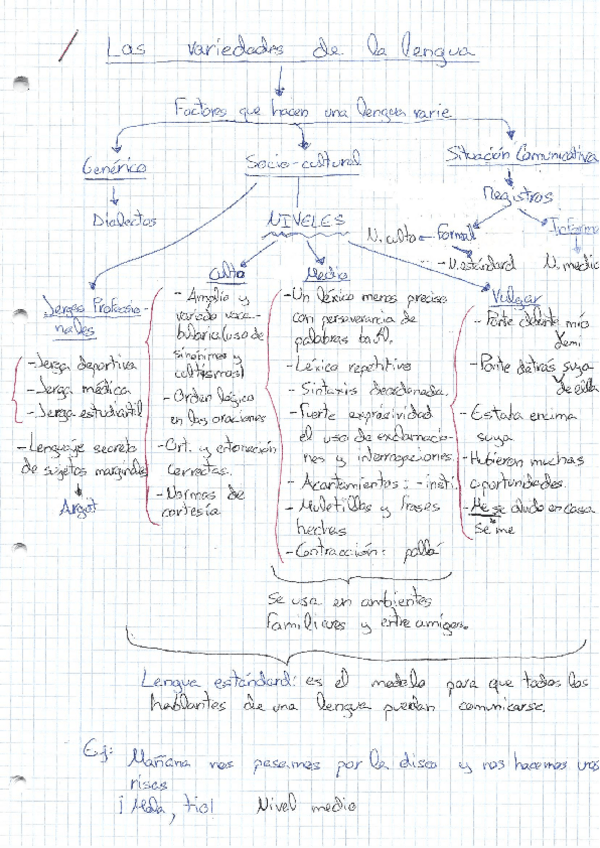 Las variedades de la lengua
Factores que hacen una lengua varie
Genérico
Socio-cultural
Situación Comunicativa
Dialectos
NIVELES
Registros
N. culto ← Formal
Informa
N. estándard
N. medio
Jergas Profesio-
nales
- Jerga deportiva
- Jerga médica
- Jerga estudiantil
- Lenguaje secreto
de sujetos marginales
Argot
Culto
- Amplio y
variado voca-
bulario (uso de
sinónimos y
cultismos)
- Orden lógico
en las oraciones
- Ort. y entonación
correctas.
- Normas de
cortesía
Medio
- Un léxico menos preciso
con perseverancia de
palabras baúl.
- Léxico repetitivo
- Sintaxis desordenada.
- Fuerte expresividad
el uso de exclamacio-
nes y interrogaciones.
- Acortamientos: - insti
- Muletillas y frases
hechas
- Contracción: pallá
Vulgar
- Ponte delante mío
de mi
- Ponte detrás suya
de ella
- Estaba encima
suya
- Hubieron muchas
oportunidades.
- Me se olvido en casa
se me
Se usa en ambientes
familiares y entre amigos.
Lengua estándard: es el modelo para que todos los
hablantes de una lengua puedan comunicarse.
Ej: Mañana nos pasamos por la disco y nos hacemos unas
risas
¡Mola, tio! Nivel medio